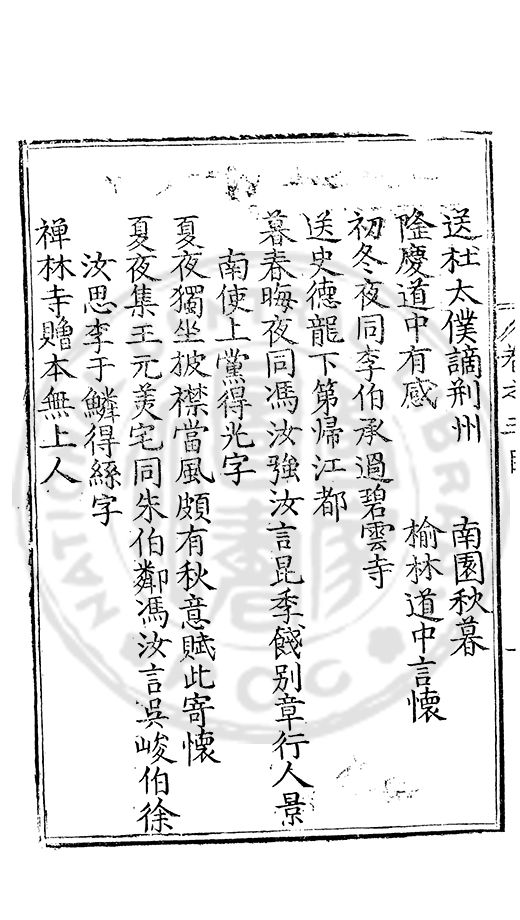 送杜太僕謫荊州　南園秋暮
隆慶道中有感　榆林道中言懷
初冬夜同李伯承過碧雲寺
送史德龍下第帰江都
暮春晦夜同馮汝強汝言昆季餞别章行人景
南使上黨得光字
夏夜獨坐披襟當風頗有秋意賦此寄懷
夏夜集王元美宅同朱伯鄰馮汝言吳峻伯徐
汝思李于鱗得絲字
禅林寺贈本無上人